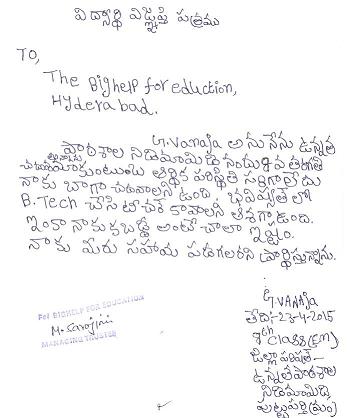 విద్యార్థి విజ్ఞప్తి పత్రము
TO,
The Bighelp for eduction,
Hyderabad.
G.Vanaja అను నేను ఉన్నత
పాఠశాల నిడిమామిడి నందు 8 వ తరగతి
చదువుతున్నాను మా కుటుంబ ఆర్థిక పరిస్థితి సరిగా లేదు
నాకు బాగా చదవాలని ఉంది. భవిష్యత్ లో
B.Tech చేసి టీచర్ కావాలని ఆశగా ఉంది.
ఇంకా నాకు కబడ్డీ అంటే చాలా ఇష్టం.
నాకు మీరు సహాయ పడగలరని ప్రార్థిస్తున్నాను.
G.VANAJA
తేది:-23-4-2015
8th Class(EM)
జిల్లా పరిషత్-
ఉన్నత పాఠశాల
నిడిమామిడి
పుట్టపర్తి(మం)
For BIGHELP FOR EDUCATION
M. Sarojini
MANAGING TRUSTEE